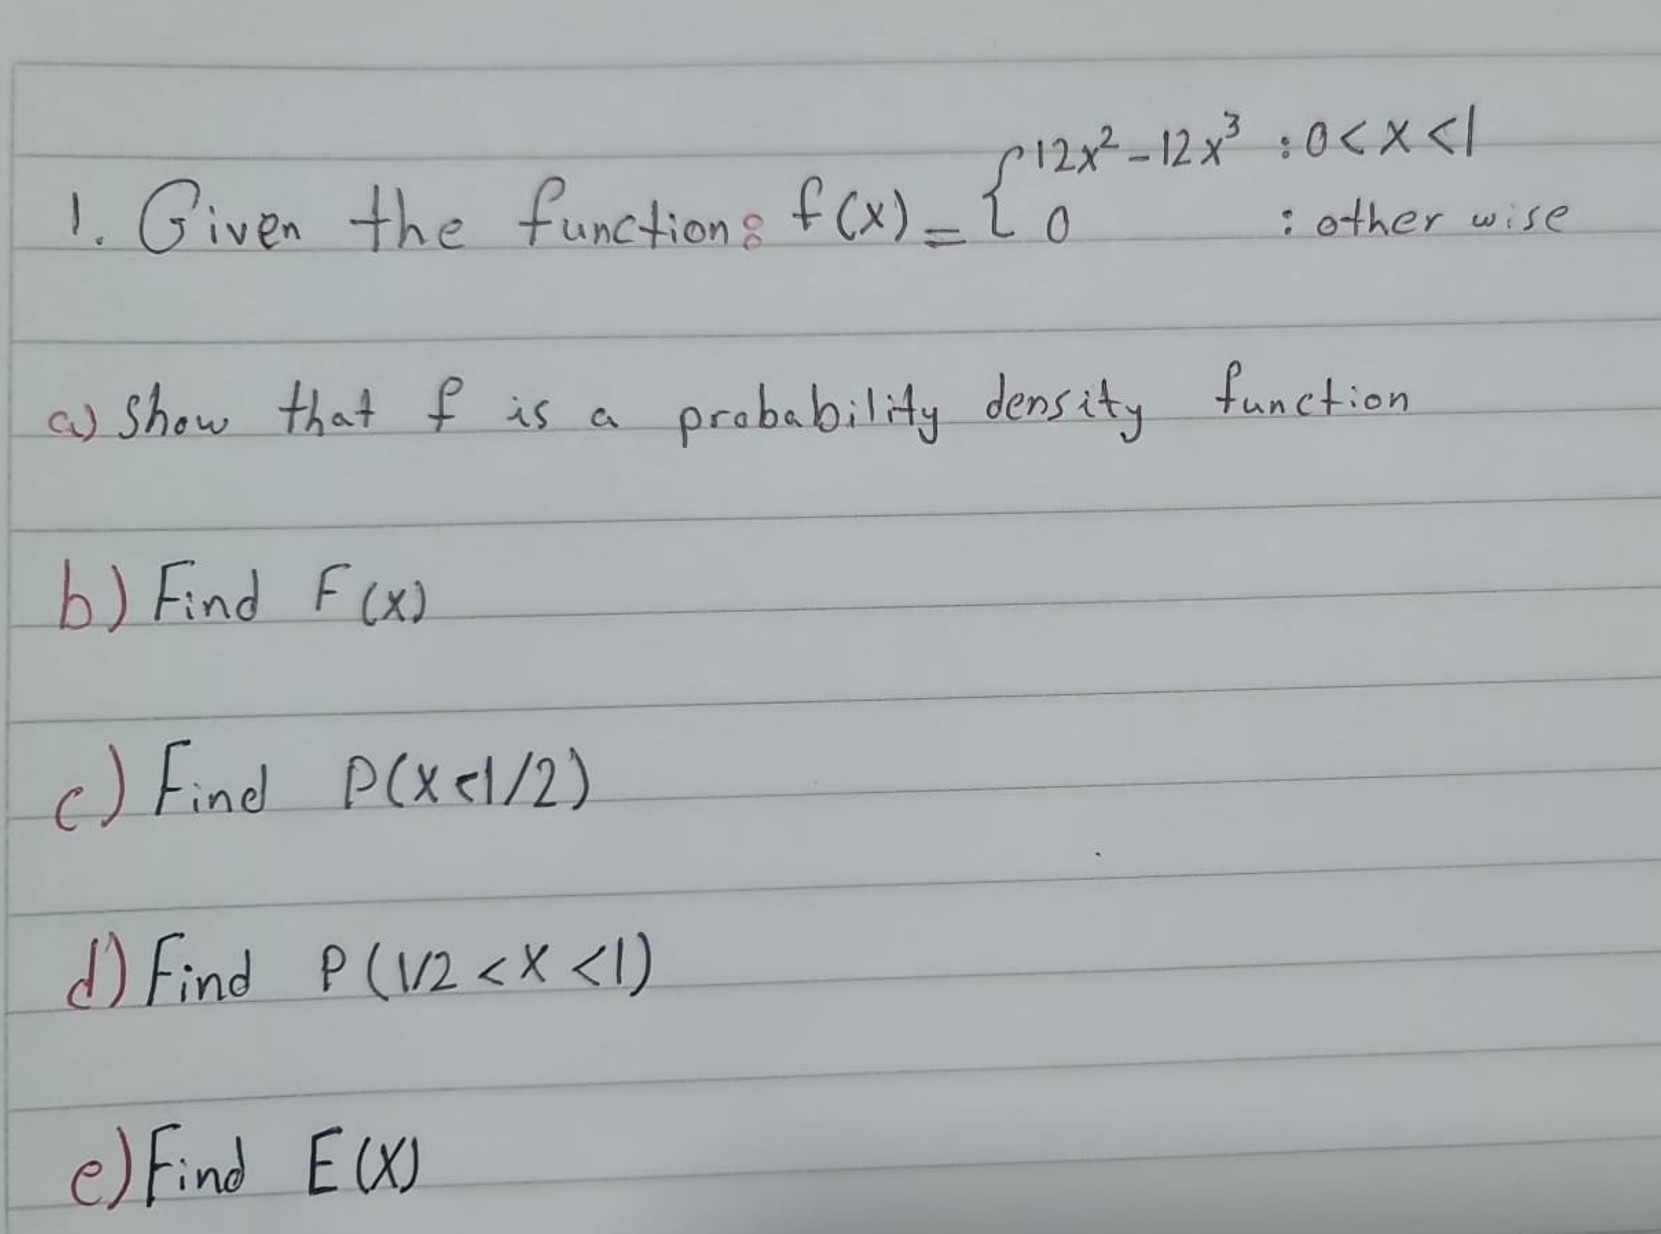 1. Given the function: f(x) = { 12x² - 12x³ : 0 < x < 1
0 : other wise
a) Show that f is a probability density function
b) Find F(x)
c) Find P(X < 1/2)
d) Find P(1/2 < X < 1)
e) Find E(X)